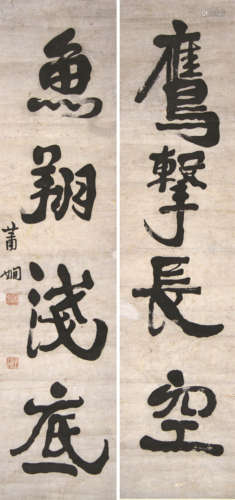 鷹擊長空
魚翔淺底
蕭嫻